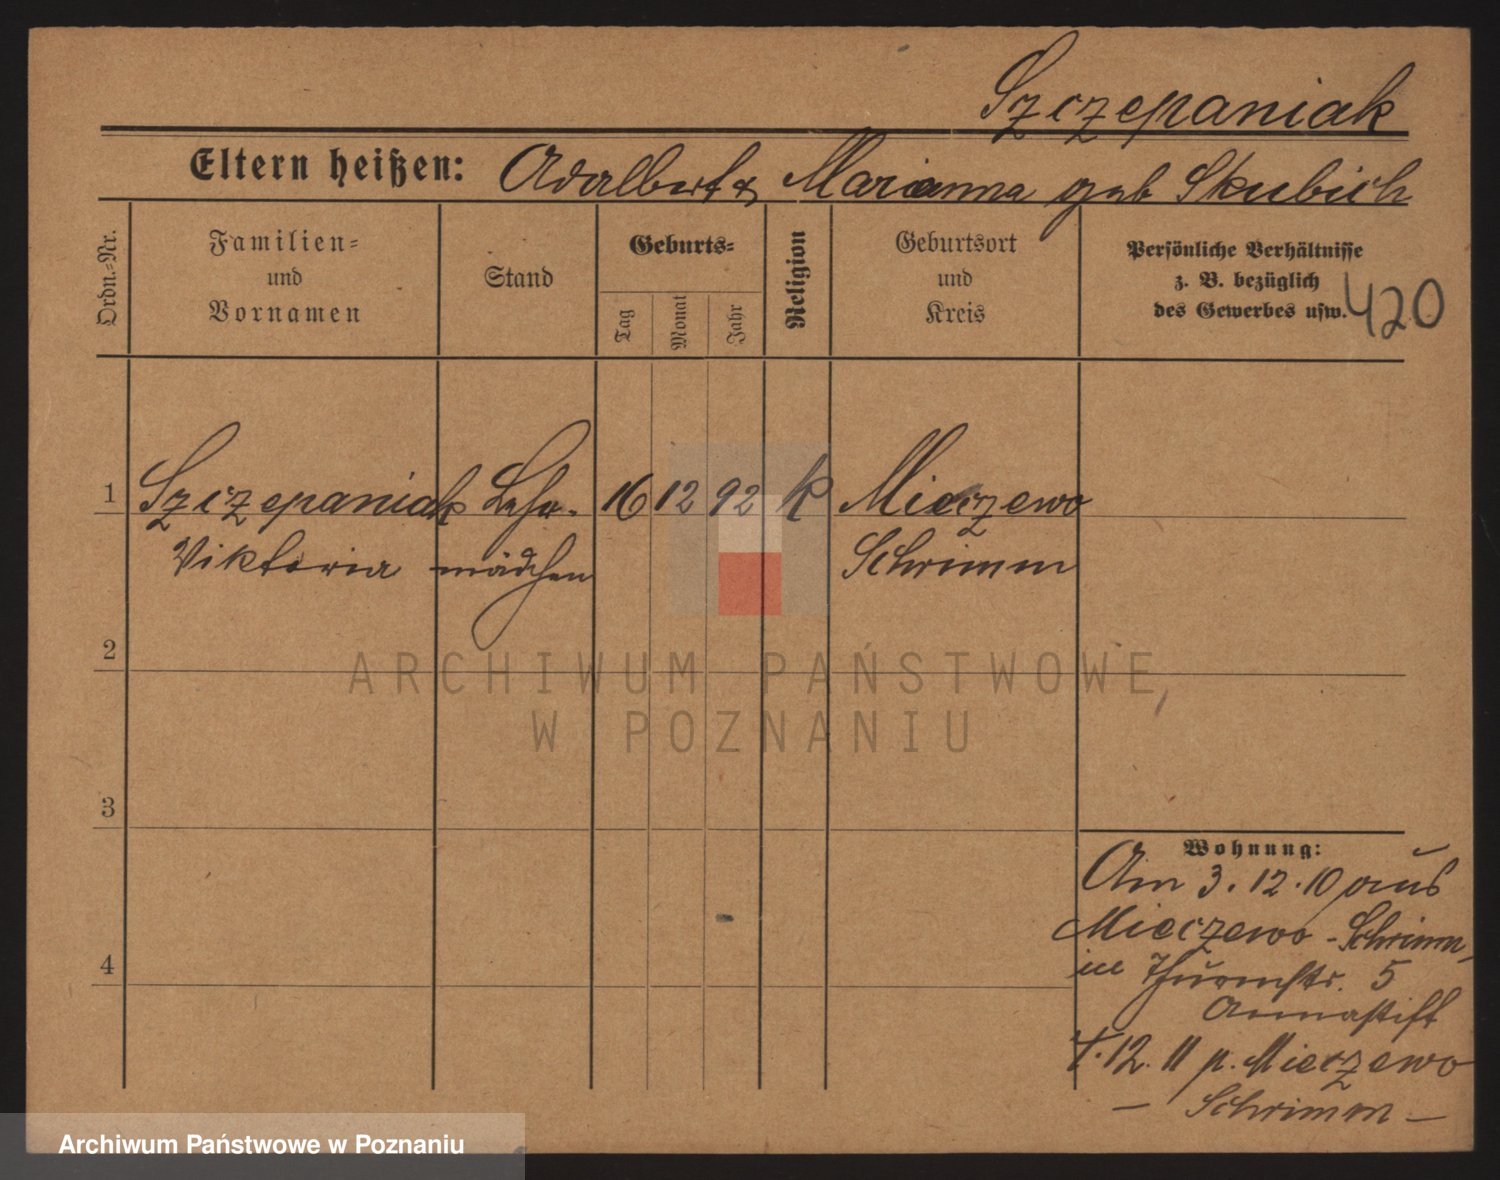 Szczepaniak
Eltern heißen: Adalbert & Marianna geb Skubich
Ordn.-Nr.
Familien-
und
Vornamen
Stand
Geburts-
Tag
Monat
Jahr
Religion
Geburtsort
und
Kreis
Persönliche Verhältnisse
z. B. bezüglich
des Gewerbes usw.
420
1 Szczepaniak Lehr- 16 12 92 k Mieczewo
Viktoria mädchen Schrimm
2
ARCHIWUM PAŃSTWOWE
W POZNANIU
3
Wohnung:
Am 3.12.10 aus
Mieczewo - Schrimm,
in Thurmstr. 5
Annastift
12. 11 p. Mieczewo
– Schrimm –
4
Archiwum Państwowe w Poznaniu